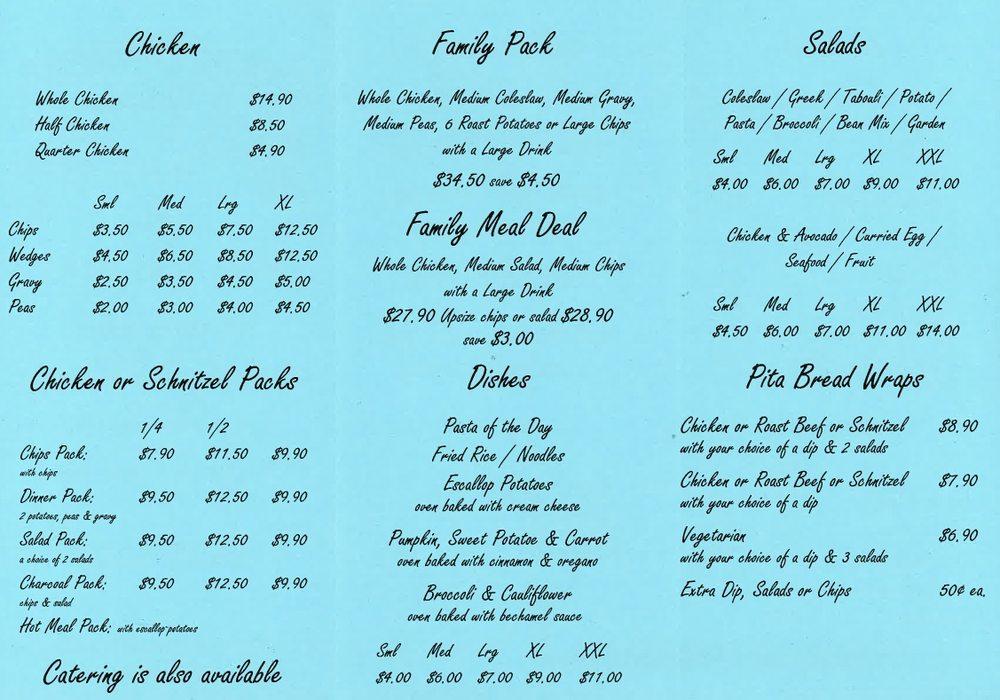 Chicken
Whole Chicken $14.90
Half Chicken $8.50
Quarter Chicken $4.90
Sml Med Lrg XL
Chips $3.50 $5.50 $7.50 $12.50
Wedges $4.50 $6.50 $8.50 $12.50
Gravy $2.50 $3.50 $4.50 $5.00
Peas $2.00 $3.00 $4.00 $4.50
Chicken or Schnitzel Packs
1/4 1/2
Chips Pack: $7.90 $11.50 $9.90
with chips
Dinner Pack: $9.50 $12.50 $9.90
2 potatoes, peas & gravy
Salad Pack: $9.50 $12.50 $9.90
a choice of 2 salads
Charcoal Pack: $9.50 $12.50 $9.90
chips & salad
Hot Meal Pack: with escallop-potatoes
Catering is also available
Family Pack
Whole Chicken, Medium Coleslaw, Medium Gravy,
Medium Peas, 6 Roast Potatoes or Large Chips
with a Large Drink
$34.50 save $4.50
Family Meal Deal
Whole Chicken, Medium Salad, Medium Chips
with a Large Drink
$27.90 Upsize chips or salad $28.90
save $3.00
Dishes
Pasta of the Day
Fried Rice / Noodles
Escallop Potatoes
oven baked with cream cheese
Pumpkin, Sweet Potatoe & Carrot
oven baked with cinnamon & oregano
Broccoli & Cauliflower
oven baked with bechamel sauce
Sml Med Lrg XL XXL
$4.00 $6.00 $7.00 $9.00 $11.00
Salads
Coleslaw / Greek / Tabouli / Potato /
Pasta / Broccoli / Bean Mix / Garden
Sml Med Lrg XL XXL
$4.00 $6.00 $7.00 $9.00 $11.00
Chicken & Avocado / Curried Egg /
Seafood / Fruit
Sml Med Lrg XL XXL
$4.50 $6.00 $7.00 $11.00 $14.00
Pita Bread Wraps
Chicken or Roast Beef or Schnitzel $8.90
with your choice of a dip & 2 salads
Chicken or Roast Beef or Schnitzel $7.90
with your choice of a dip
Vegetarian $6.90
with your choice of a dip & 3 salads
Extra Dip, Salads or Chips 50¢ ea.